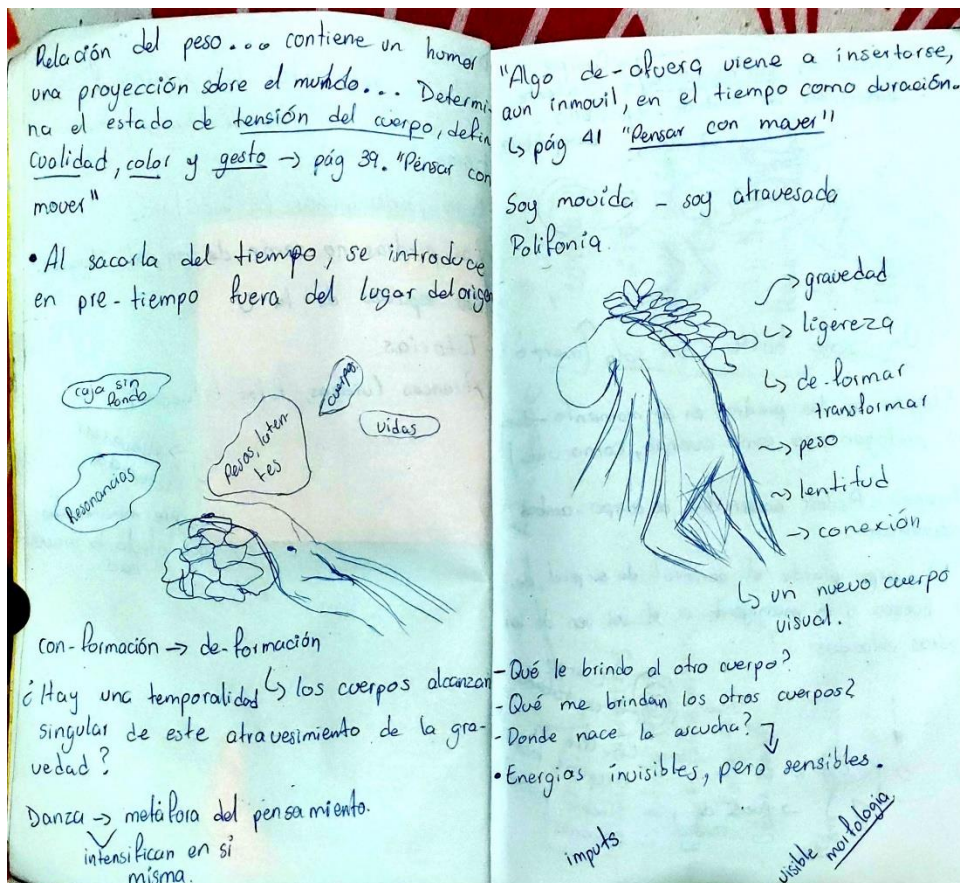 Relación del peso... contiene un humor
una proyección sobre el mundo... Determi-
na el estado de tensión del cuerpo, defin
Cualidad, color y gesto → pág 39. "Pensar con
mover"
• Al sacarla del tiempo, se introduce
en pre-tiempo fuera del lugar del origen
caja sin
fondo
cuerpos
vidas
Pesos, laten
tes
Resonancias
con-formación → de-formación
↳ los cuerpos alcanzan
¿Hay una temporalidad
singular de este atravesimiento de la gra-
vedad?
Danza → metáfora del pensamiento.
intensifican en sí
misma.
"Algo de-afuera viene a insertarse,
aun inmovil, en el tiempo como duración.
↳ pág 41 "Pensar con mover"
Soy movida - soy atravesada
Polifonía.
→ gravedad
↳ ligereza
↳ de-formar
transformar
→ peso
→ lentitud
→ conexión
↳ un nuevo cuerpo
visual.
- Qué le brindo al otro cuerpo?
- Qué me brindan los otros cuerpos?
- Donde nace la escucha?
• Energías invisibles, pero sensibles.
imputs
visible morfologia